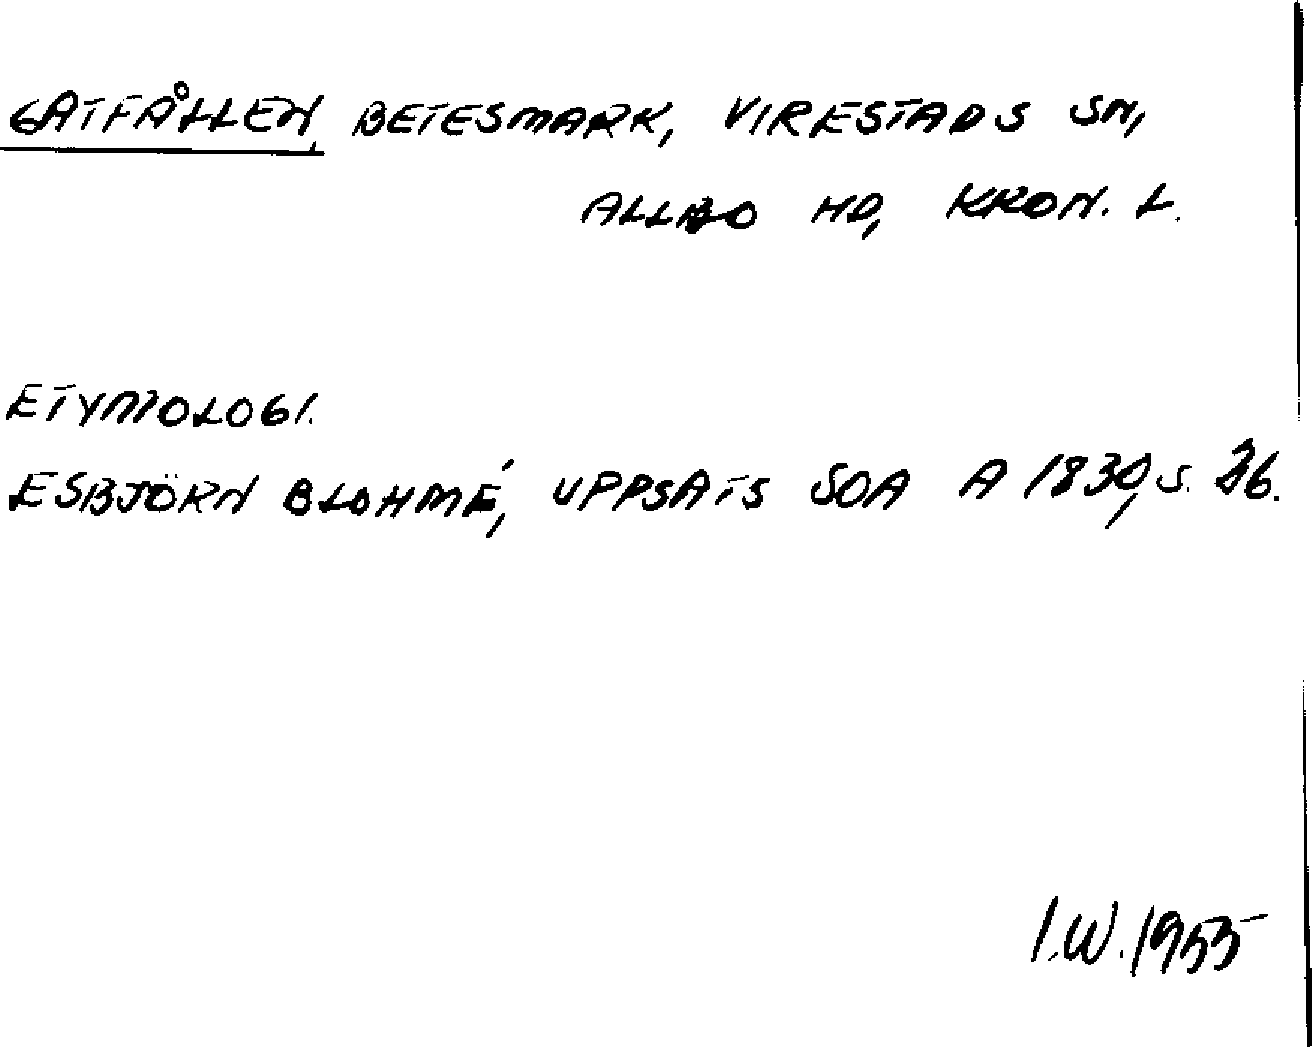 GATFÅLLEN, BETESMARK, VIRESTADS SN,
ALLBO HD, KRON. L.
ETYMOLOGI.
ESBJÖRN BLOHMÉ, UPPSATS SOA A 1830, S. 36.
I.W. 1955